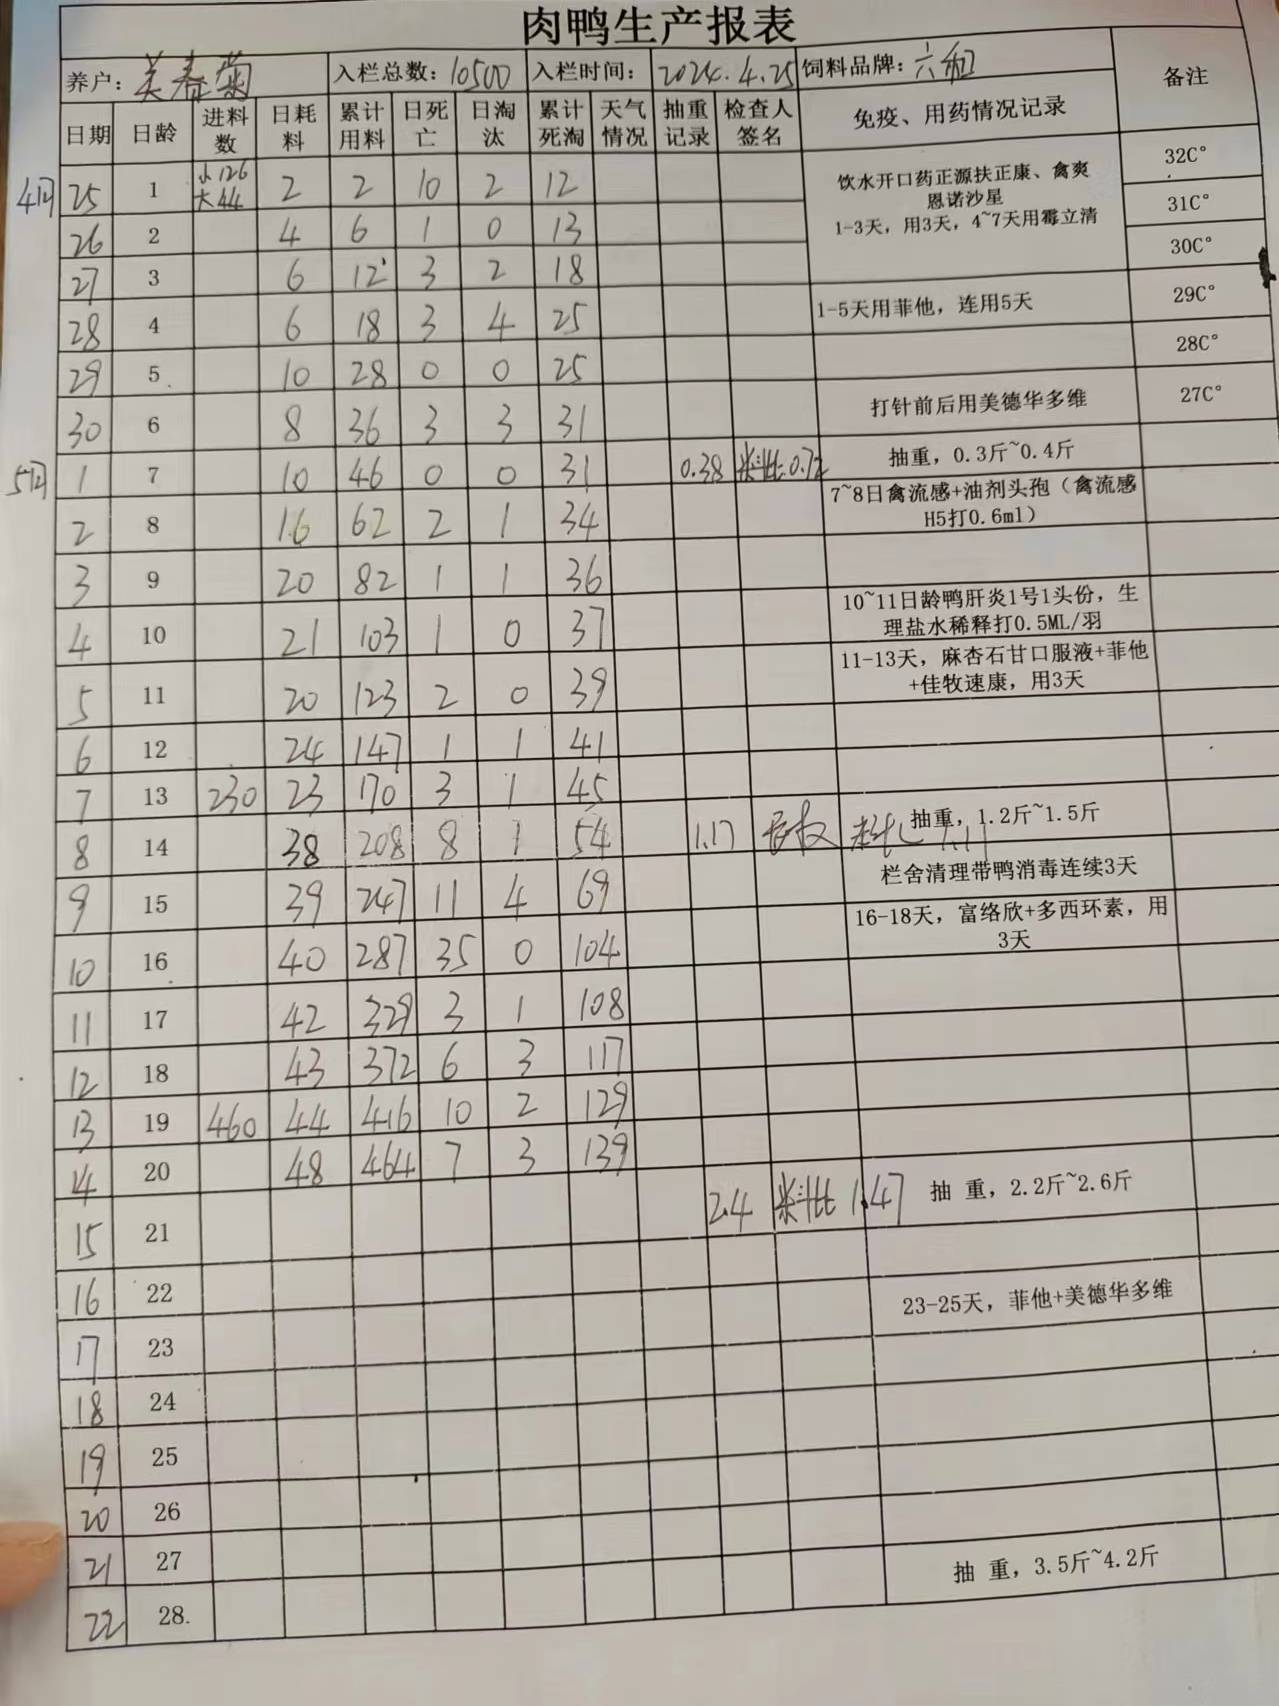 肉鸭生产报表
养户： 春菊 入栏总数：10500 入栏时间：2024.4.25 饲料品牌：六和 备注
日期 日龄 进料数 日耗料 累计用料 日死亡 日淘汰 累计死淘 天气情况 抽重记录 检查人签名 免疫、用药情况记录
4月 25 1 小126 大44 2 2 10 2 12 饮水开口药正源扶正康、禽爽 32C°
恩诺沙星
26 2 4 6 1 0 13 1-3天，用3天，4~7天用霉立清 31C°
27 3 6 12 3 2 18 30C°
28 4 6 18 3 4 25 1-5天用菲他，连用5天 29C°
29 5 10 28 0 0 25 28C°
30 6 8 36 3 3 31 打针前后用美德华多维 27C°
5月 1 7 10 46 0 0 31 0.38 料比0.72 抽重，0.3斤~0.4斤
2 8 16 62 2 1 34 7~8日禽流感+油剂头孢（禽流感
H5打0.6ml）
3 9 20 82 1 1 36
4 10 21 103 1 0 37 10~11日龄鸭肝炎1号1头份，生
理盐水稀释打0.5ML/羽
5 11 20 123 2 0 39 11-13天，麻杏石甘口服液+菲他
+佳牧速康，用3天
6 12 24 147 1 1 41
7 13 230 23 170 3 1 45
8 14 38 208 8 1 54 1.17 料比 1.11 抽重，1.2斤~1.5斤
9 15 39 247 11 4 69 栏舍清理带鸭消毒连续3天
10 16 40 287 35 0 104 16-18天，富络欣+多西环素，用
3天
11 17 42 329 3 1 108
12 18 43 372 6 3 117
13 19 460 44 416 10 2 129
14 20 48 464 7 3 139
15 21 2.4 料比 1.47 抽 重，2.2斤~2.6斤
16 22
17 23 23-25天，菲他+美德华多维
18 24
19 25
20 26
21 27
22 28. 抽 重，3.5斤~4.2斤